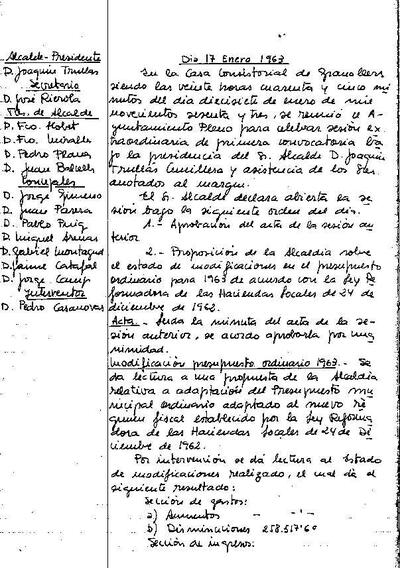 Alcalde-Presidente
D. Joaquin Trullas
Secretario
D. José Rierola
Ttes. de Alcalde
D. Fco. Holst
D. Fco. Miralles
D. Pedro Planas
D. Juan Balcells
Concejales
D. Jorge Gimeno
D. Juan Parera
D. Pablo Puig
D. Miquel Arenas
D. Gabriel Montagud
D. Jaime Catafal
D. Jorge Camp
Interventor
D. Pedro Casanovas
Dia 17 Enero 1963
En la Casa Consistorial de Granollers
siendo las veinte horas cuarenta y cinco mi
nutos del dia diecisiete de enero de mil
novecientos sesenta y tres, se reunió el A-
yuntamiento Pleno para celebrar sesión ex
traordinaria de primera convocatoria ba
jo la presidencia del Sr. Alcalde D. Joaquin
Trullas Cunillera y asistencia de los Sres.
anotados al margen.
El Sr. Alcalde declara abierta la se
sión bajo la siguiente orden del dia.
1.- Aprobación del acta de la sesión an
terior.
2.- Proposición de la Alcaldia sobre
el estado de modificaciones en el presupuesto
ordinario para 1963 de acuerdo con la Ley Re
formadora de las Haciendas Locales de 24 de
diciembre de 1962.
Acta.- Leida la minuta del acta de la se-
sión anterior, se acordo aprobarla por una
nimidad.
Modificación presupuesto ordinario 1963.- Se
da lectura a una propuesta de la Alcaldia
relativa a adaptación del Presupuesto mu
nicipal ordinario adaptado al nuevo ré
gimen fiscal establecido por la Ley Reforma
dora de las Haciendas Locales de 24 de Di
ciembre de 1962.
Por intervención se dá lectura al Estado
de modificaciones realizado, el cual dá el
siguiente resultado:
Sección de gastos:
a) Aumentos - - " -
b) Disminuciones 258.517'60
Sección de ingresos: